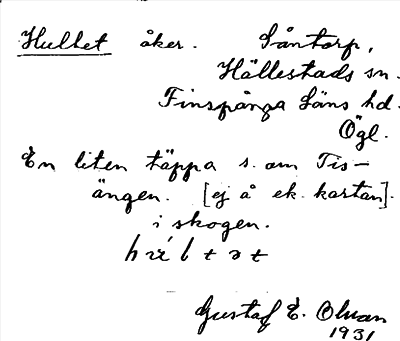 Hultet åker. Såntorp,
Hällestads sn.
Finspånga läns hd.
Ögl.
En liten täppa s. om Tis-
ängen. [ej å ek. kartan].
i skogen.
Gustaf E. Olman
1931